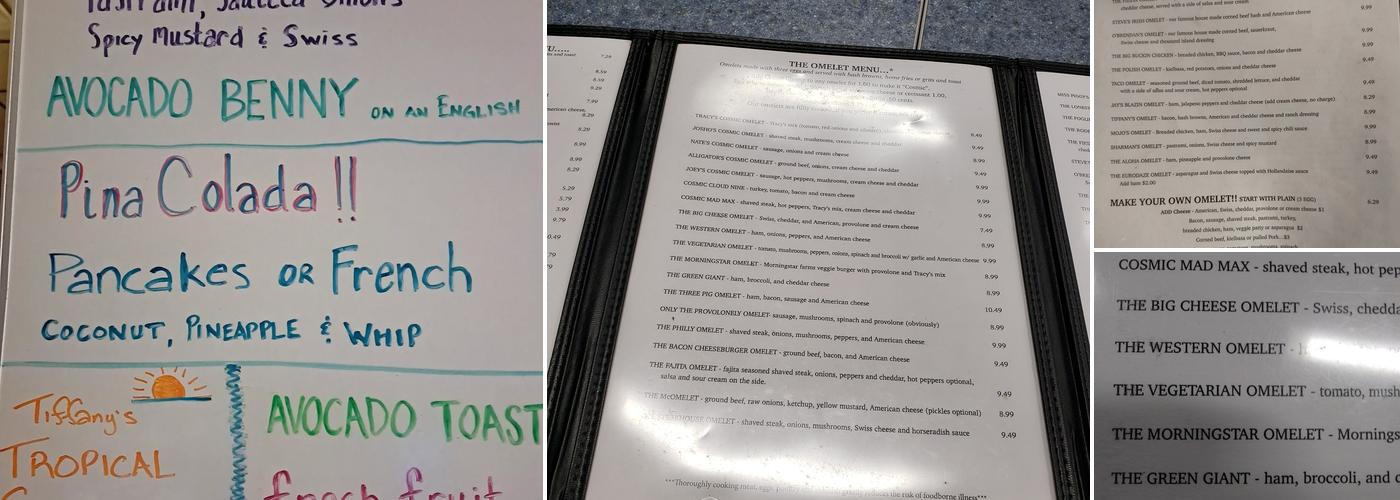 Spicy Mustard & Swiss
AVOCADO BENNY ON AN ENGLISH
Pina Colada !!
Pancakes OR French
COCONUT, PINEAPPLE & WHIP
Tiffany's
TROPICAL
AVOCADO TOAST
fresh fruit
THE OMELET MENU...*
Omelets made with three eggs and served with hash browns, home fries or grits and toast
TRACY'S COSMIC OMELET - Tracy's mix (tomato, red onions and 8.49
JOSHO'S COSMIC OMELET - shaved steak, mushrooms, cream cheese and cheddar 9.49
NATE'S COSMIC OMELET - sausage, onions and cream cheese 8.99
ALLIGATOR'S COSMIC OMELET - ground beef, onions, cream cheese and cheddar 9.49
JOEY'S COSMIC OMELET - sausage, hot peppers, mushrooms, cream cheese and cheddar 9.99
COSMIC CLOUD NINE - turkey, tomato, bacon and cream cheese 9.99
COSMIC MAD MAX - shaved steak, hot peppers, Tracy's mix, cream cheese and cheddar 9.99
THE BIG CHEESE OMELET - Swiss, cheddar, and American, provolone and cream cheese 7.49
THE WESTERN OMELET - ham, onions, peppers, and American cheese 8.99
THE VEGETARIAN OMELET - tomato, mushrooms, peppers, onions, spinach and broccoli w/ garlic and American cheese 9.99
THE MORNINGSTAR OMELET - Morningstar farms veggie burger with provolone and Tracy's mix 8.99
THE GREEN GIANT - ham, broccoli, and cheddar cheese 8.99
THE THREE PIG OMELET - ham, bacon, sausage and American cheese 10.49
ONLY THE PROVOLONELY OMELET- sausage, mushrooms, spinach and provolone (obviously) 8.99
THE PHILLY OMELET - shaved steak, onions, mushrooms, peppers, and American cheese 9.99
THE BACON CHEESEBURGER OMELET - ground beef, bacon, and American cheese 9.49
THE FAJITA OMELET - fajita seasoned shaved steak, onions, peppers and cheddar, hot peppers optional,
salsa and sour cream on the side. 9.49
THE McOMELET - ground beef, raw onions, ketchup, yellow mustard, American cheese (pickles optional) 8.99
- shaved steak, onions, mushrooms, Swiss cheese and horseradish sauce 9.49
***Thoroughly cooking meat, reduces the risk of foodborne illness***
cheddar cheese, served with a side of salsa and sour cream 9.99
STEVE'S IRISH OMELET - our famous house made corned beef hash and American cheese 9.99
O'BRENDAN'S OMELET - our famous house made corned beef, sauerkraut,
Swiss cheese and thousand island dressing 9.99
THE BIG BUCKIN CHICKEN - breaded chicken, BBQ sauce, bacon and cheddar cheese 9.99
THE POLISH OMELET - kielbasa, red potatoes, onions and cheddar cheese 9.49
TACO OMELET - seasoned ground beef, diced tomato, shredded lettuce, and cheddar
with a side of salsa and sour cream, hot peppers optional 9.49
JAY'S BLAZIN OMELET - ham, jalapeno peppers and cheddar cheese (add cream cheese, no charge) 8.99
TIFFANY'S OMELET - bacon, hash browns, American and cheddar cheese and ranch dressing 8.99
MOJO'S OMELET - Breaded chicken, ham, Swiss cheese and sweet and spicy chili sauce 9.99
SHARMAN'S OMELET - pastrami, onions, Swiss cheese and spicy mustard 8.99
THE ALOHA OMELET - ham, pineapple and provolone cheese 9.49
THE EURODAZE OMELET - asparagus and Swiss cheese topped with Hollandaise sauce 9.49
Add ham $2.00
MAKE YOUR OWN OMELET!! START WITH PLAIN (3 EGG) 6.29
ADD Cheese - American, Swiss, cheddar, provolone or cream cheese $1
Bacon, sausage, shaved steak, pastrami, turkey,
breaded chicken, ham, veggie patty or asparagus $2
Corned beef, kielbasa or pulled Pork...$3
COSMIC MAD MAX - shaved steak, hot pep
THE BIG CHEESE OMELET - Swiss, chedda
THE WESTERN OMELET -
THE VEGETARIAN OMELET - tomato, mush
THE MORNINGSTAR OMELET - Mornings
THE GREEN GIANT - ham, broccoli, and c